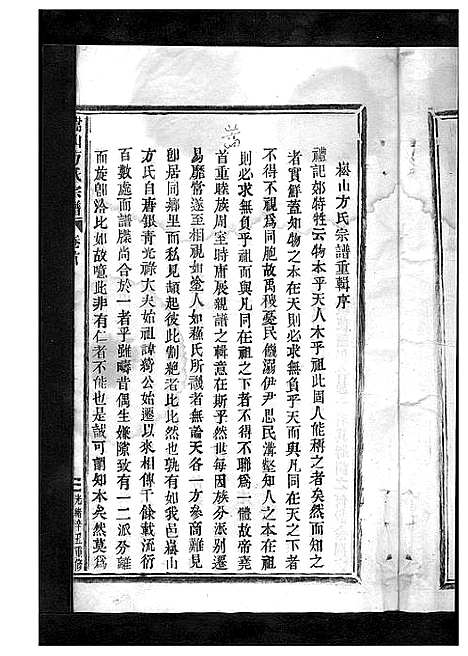 崧山方氏宗譜重輯序
禮記郊特牲云物本乎天人本乎祖此固人能稱之者矣然而知之
者實鮮蓋知物之本在天則必求無負乎天而與凡同在天之下者
不得不視爲同胞故禹稷憂民饑溺伊尹思民溝壑知人之本在祖
則必求無負乎祖而與凡同在祖之下者不得不聯爲一體故帝堯
首重睦族周室時庸展親譜之輯意在斯乎然世每因族分派別遷
易靡常遂至相視如塗人如蘇氏所譏者無論天各一方參商難見
卽居同鄉里而私見頡起彼此劃絶者比比然也孰有如我邑崧山
方氏自唐銀青光祿大夫始祖諱綺公始遷以來相傳千餘載流衍
百數處而譜牒尚合於一者乎雖疇昔偶生嫌隙致有一二派分離
而旋卽洽比如故噫此非有仁者不能也是誠可謂知本矣然莫爲
嵩
山方氏宗譜
卷首
一
光緒辛丑重修